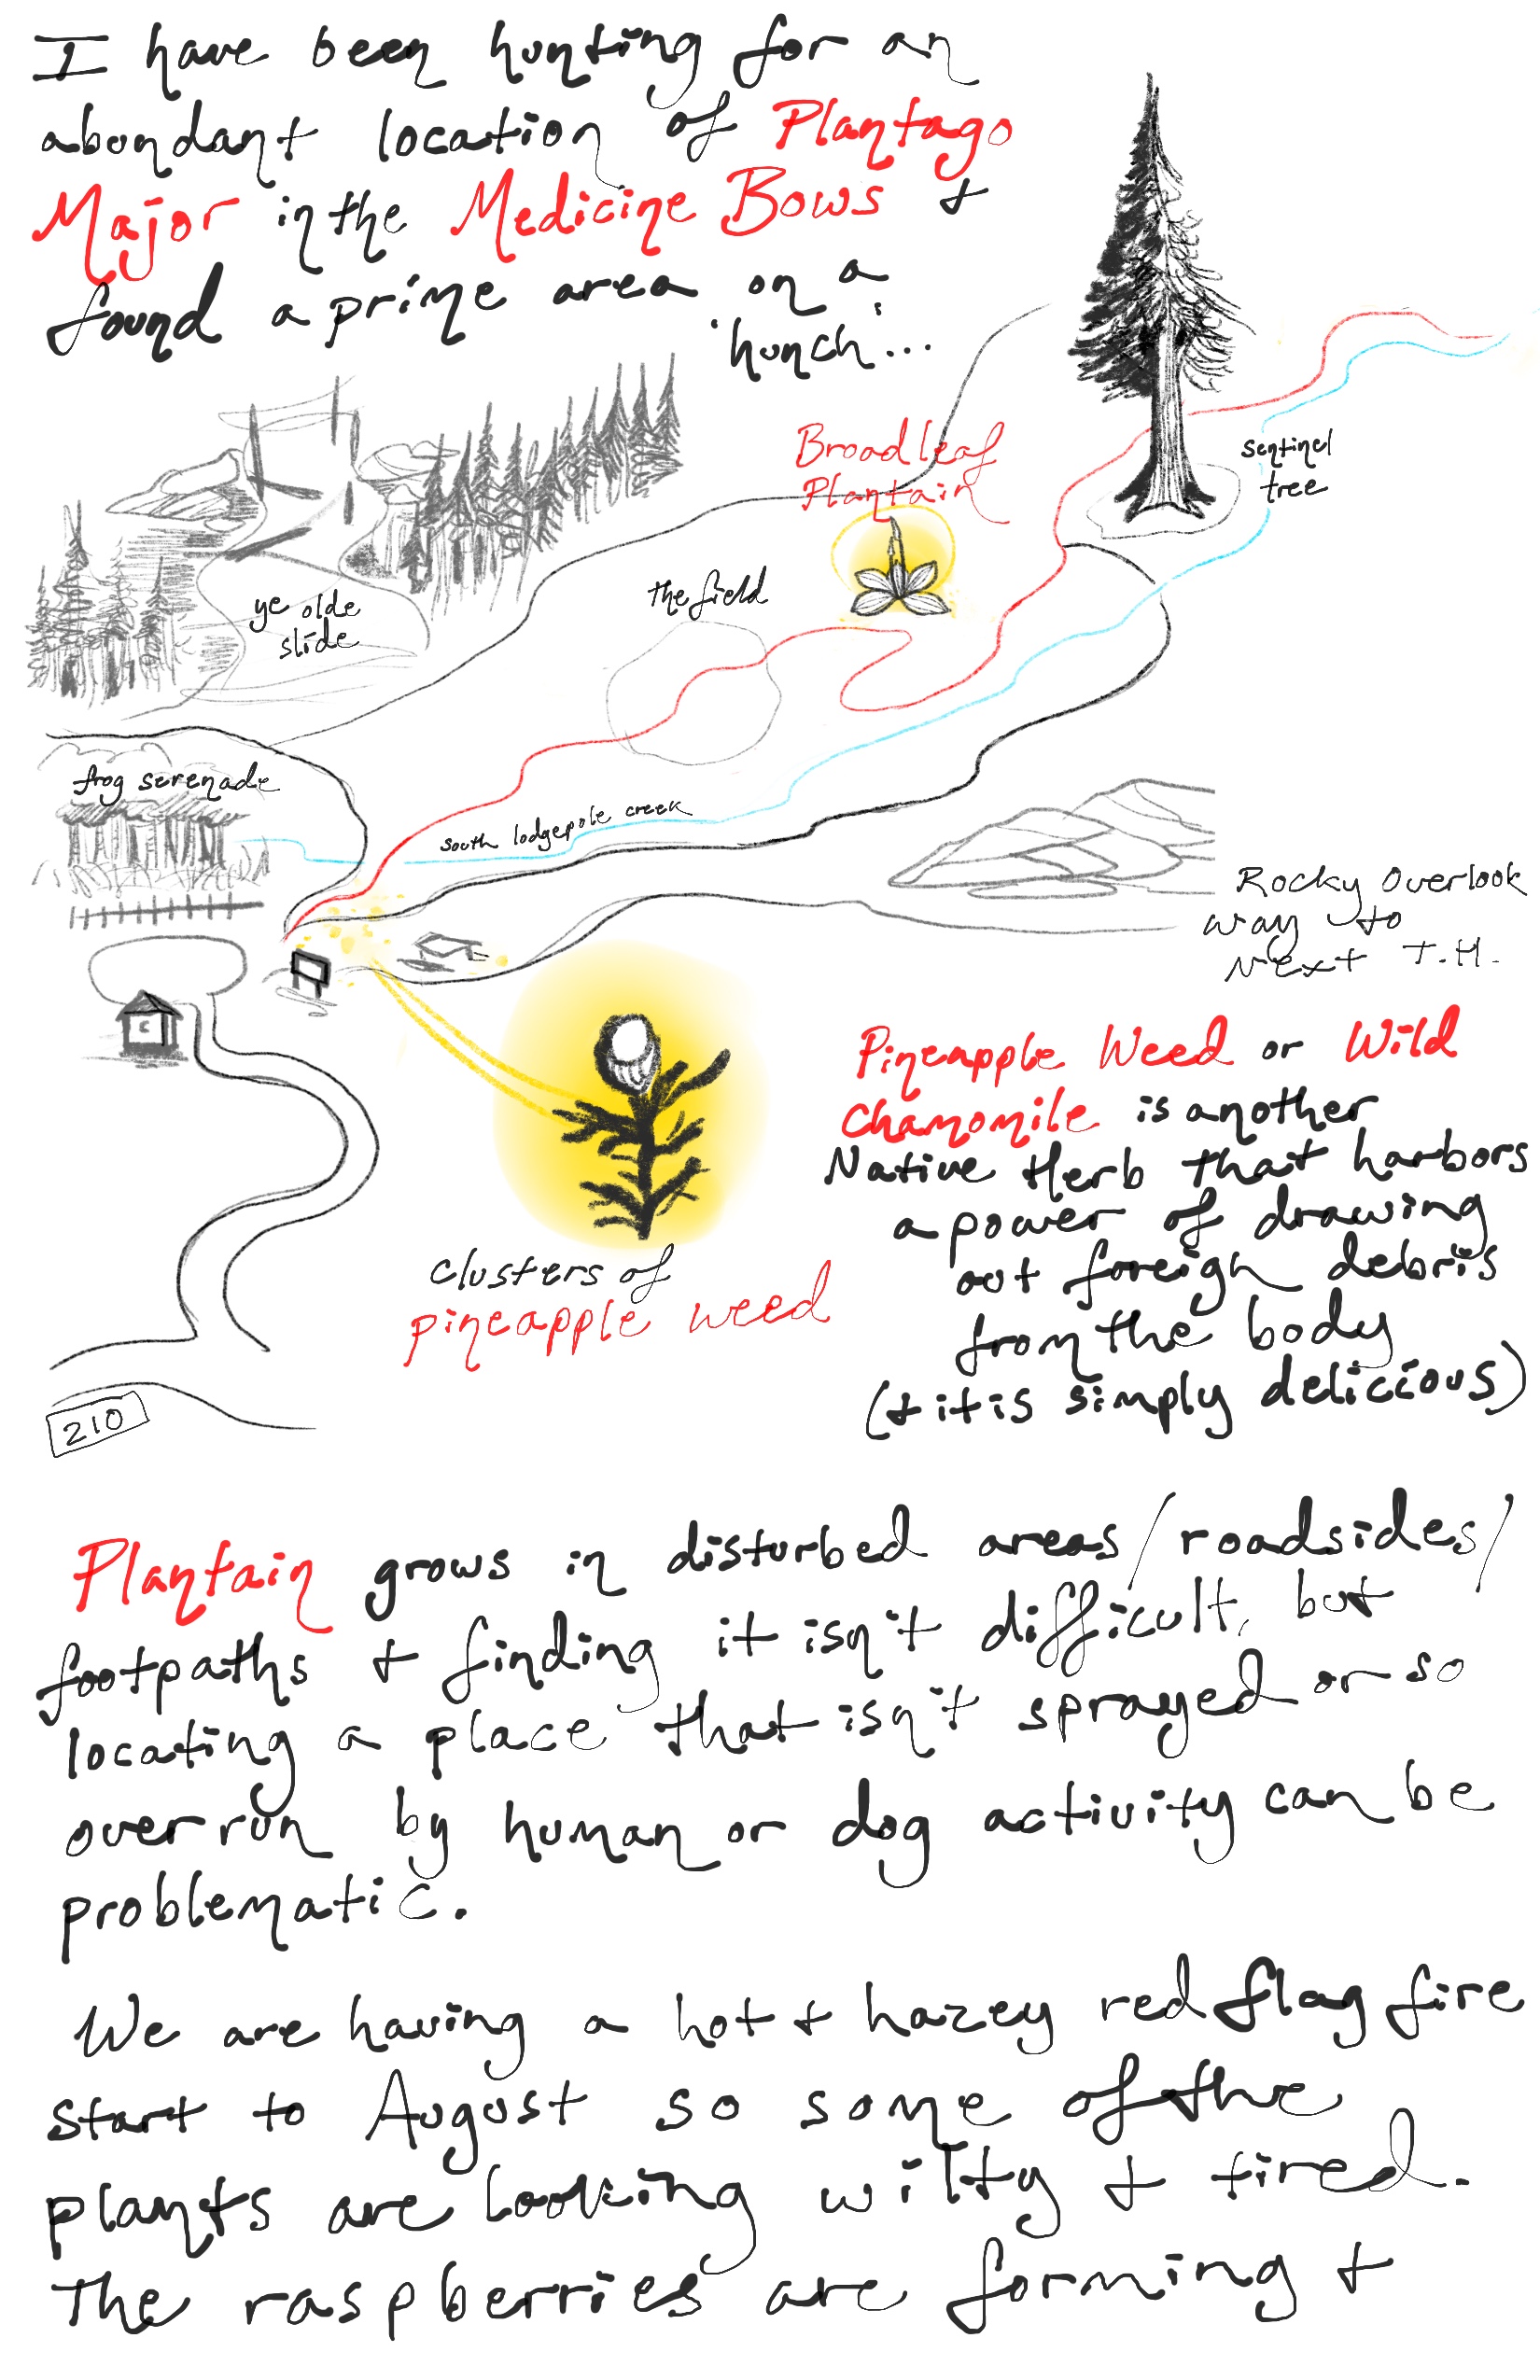 I have been hunting for an
abundant location of Plantago
Major in the Medicine Bows +
found a prime area on a
'hunch'...
Broadleaf
Plantain
sentinel
tree
the field
ye olde
slide
frog serenade
south lodgepole creek
Rocky Overlook
way to
Next T.H.
Pineapple Weed or Wild
Chamomile is another
Native Herb that harbors
a power of drawing
out foreign debris
from the body
(+ it is simply delicious)
clusters of
pineapple weed
210
Plantain grows in disturbed areas/roadsides/
footpaths + finding it isn't difficult, but
locating a place that isn't sprayed or so
overrun by human or dog activity can be
problematic.
We are having a hot + hazey red flag fire
start to August so some of the
plants are looking wilty + tired.
The raspberries are forming +